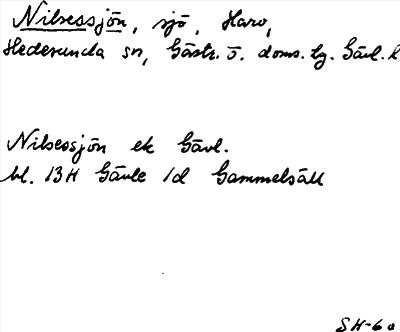 Nilsessjön, sjö, Haro,
Hedesunda sn, Gästr. ö. doms. hg. Gävl. l
Nilsessjön ek Gävl.
bl. 13H Gävle 1d Gammelsäll
SH-60